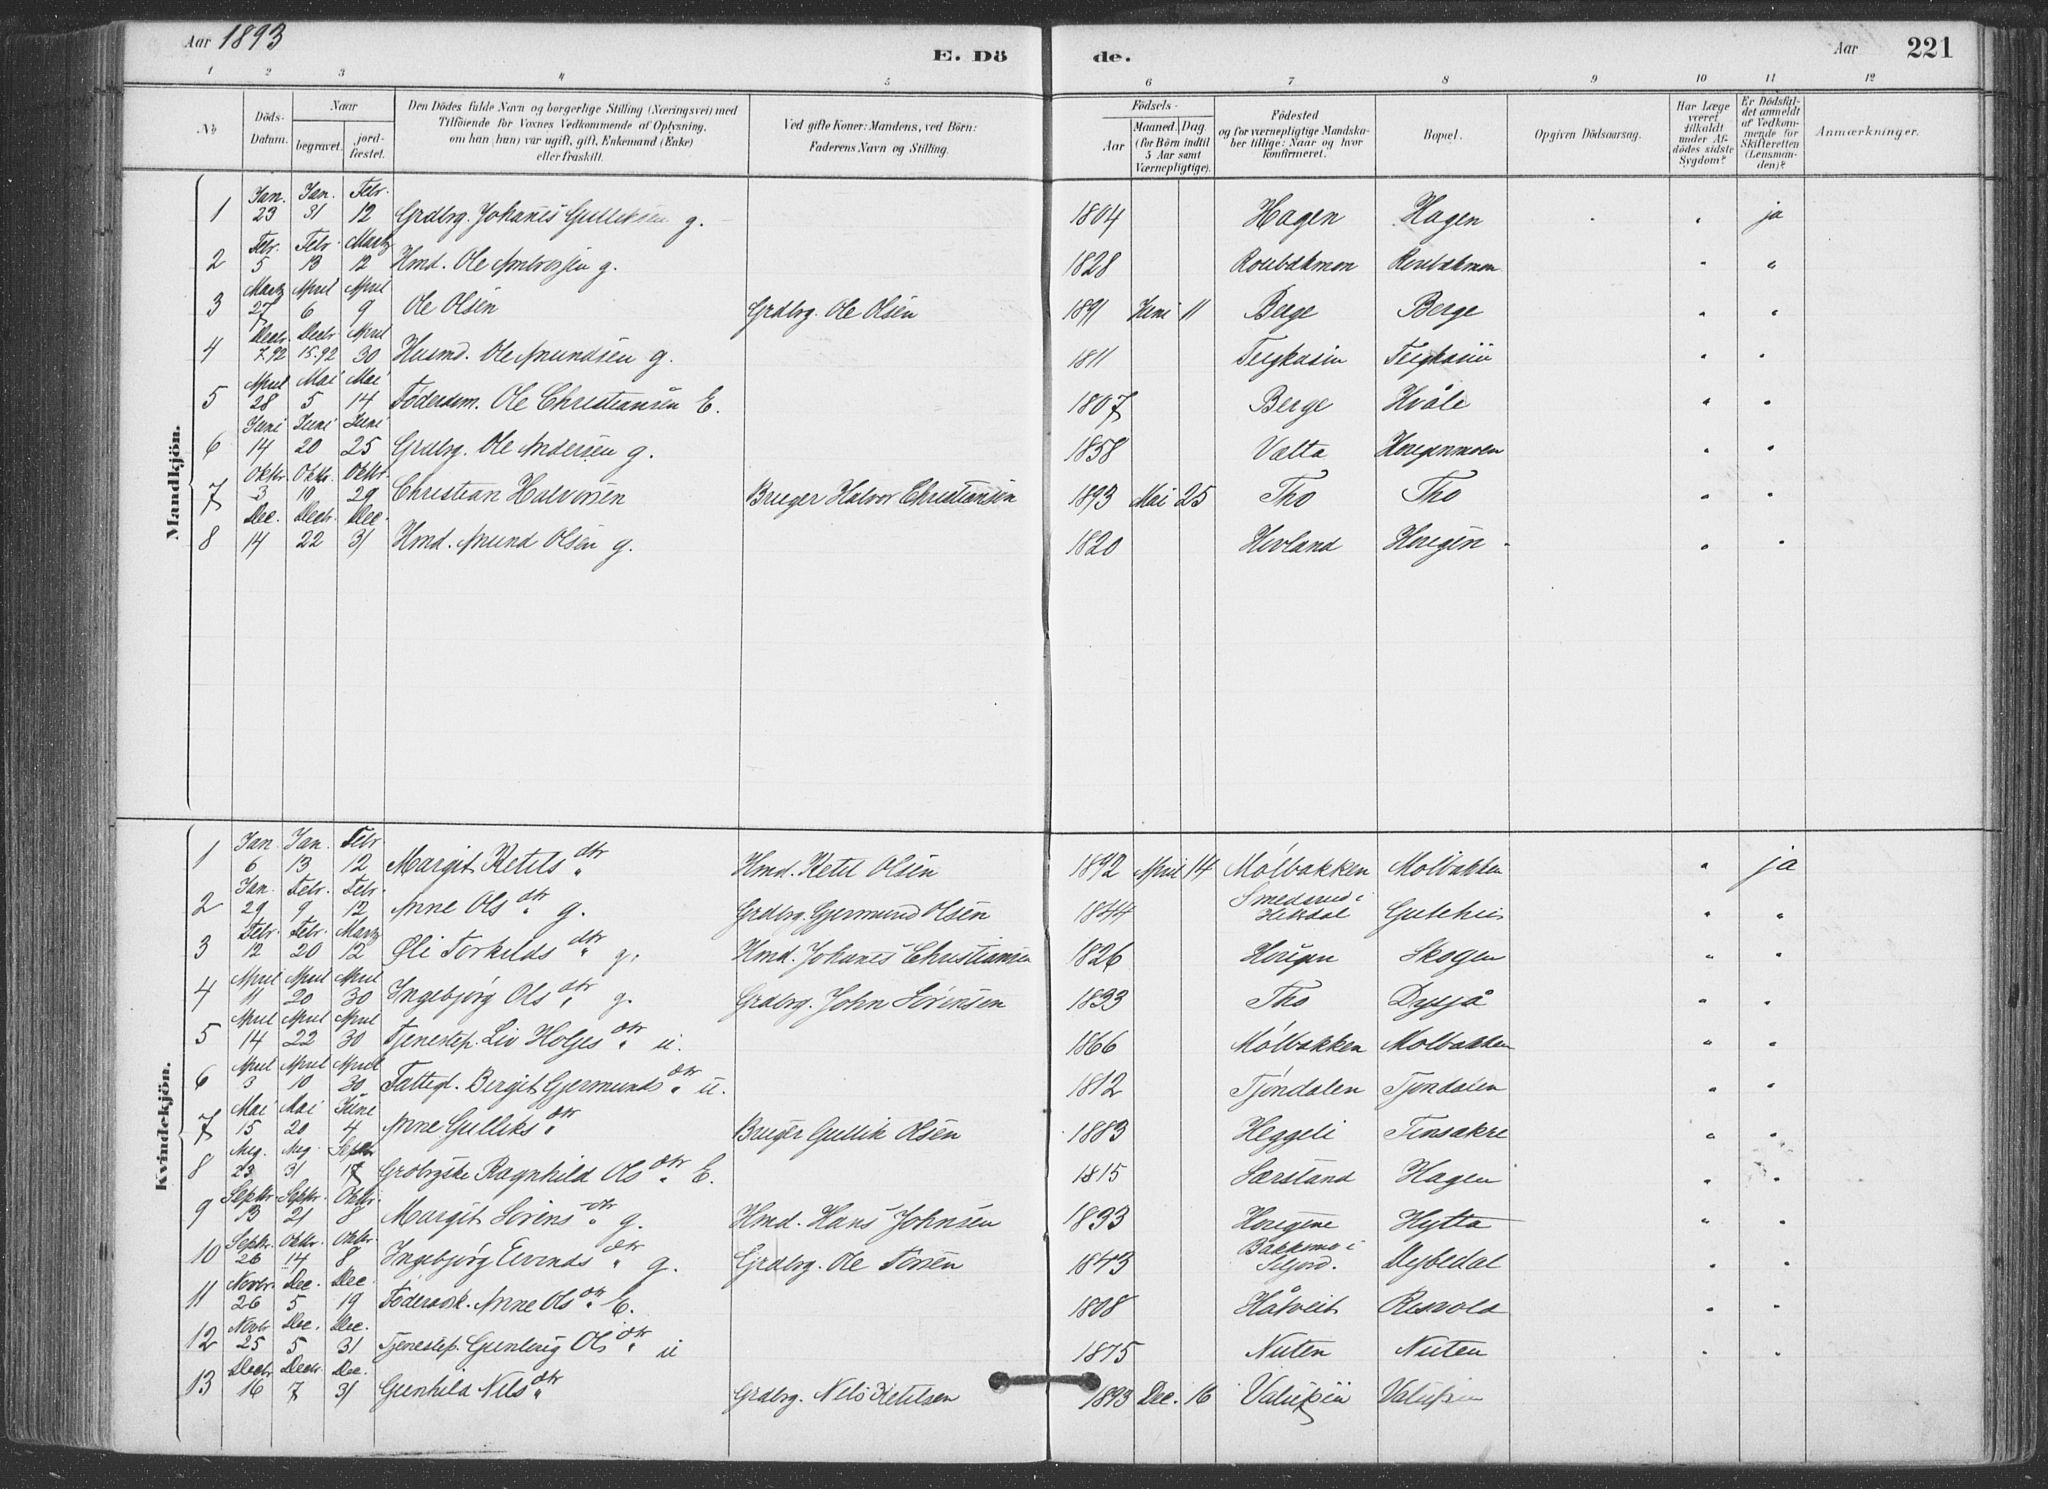 Aar 1893
E. Dö
de.
Aar
221
1 2 3 4 5 6 7 8 9 10 11 12
No
Döds-Datum.
Naar
begravet.
jord-fæstet.
Den Dödes fulde Navn og borgerlige Stilling (Næringsvei) med
Tilföiende for Voxnes Vedkommende af Oplysning.
om han (hun) var ugift, gift, Enkemand (Enke)
eller fraskilt.
Ved gifte Koner: Mandens, ved Börn:
Faderens Navn og Stilling.
Födsels-
Aar
Maaned. Dag.
(for Börn indtil
5 Aar samt
Værnepligtige).
Födested
og for værnepligtige Mandska-
ber tillige: Naar og hvor
konfirmeret.
Bopæl.
Opgiven Dödsaarsag.
Har Læge
været
tilkaldt
under Af-
dödes sidste
Sygdom?
Er Dödsfal-
det anmeldt
af Vedkom-
mende for
Skifteretten
(Lensman-
den)?
Anmærkninger.
Mandkjön.
1 Jan. 23 Jan. 31 Febr. 12 Grdbrg. Johanes Gulliksen g. 1804 Hagen Hagen " ja
2 Febr. 5 Febr. 13 Martz 12 Hmd. Ole Ambrosjen g. 1828 Roubakmon Roubakmon " "
3 Martz 27 April 6 April 9 Ole Olsen Grdbrg. Ole Olsen 1891 Juni 11 Berge Berge " "
4 Decbr. 7.92 Decbr 15.92 April 30 Husmd. Ole Amundsen g. 1811 Teigkasin Teigkasin " "
5 April 28 Mai 5 Mai 14 Föderdsm. Ole Christiansen E. 1807 Berge Hvåle " "
6 Juni 14 Juni 20 Juni 25 Grdbrg. Ole Andersen g. 1858 Vætta Horgenmoen " "
7 Oktbr 3 Oktbr. 10 Oktbr. 29 Christian Halvorsen Bruger Halvor Christiansen 1893 Mai 25 Tho Tho " "
8 Dec. 14 Decbr. 22 Dec. 31 Hmd. Amund Olsen g. 1820 Hovland Horgen " "
Kvindekjön.
1 Jan. 6 Jan. 13 Febr 12 Margit Ketils dtr Hmd. Ketil Olsen 1892 April 14 Mölbakken Molbakken " ja
2 Jan. 29 Febr. 9 Febr. 12 Anne Ols dtr g. Grdbrg. Gjermund Olsen 1844 Smedsrud i Hitrdal " "
3 Febr. 12 Febr. 20 Martz 12 Øli Torkilds dtr g. Hmd. Johanes Christiansen 1826 Horgen Skogen " "
4 April 11 April 20 April 30 Ingebjörg Ols dtr g. Grdbrg. John Sörensen 1833 Tho Dysjå " "
5 April 14 April 22 April 30 Tjenestep. Liv Holjes dtr u. 1866 Mölbakken Molbakken " "
6 April 3 April 10 April 30 Fattigl. Bergit Gjermunds dtr u. 1812 Tjöndalen Tjöndalen " "
7 Mai 15 Mai 20 June 4 Anne Gulliks dtr Bruger Gullik Olsen 1883 Heggeli Tinsakre " "
8 Aug. 23 Aug. 31 Septbr 17 Grdbrgske Ragnhild Ols dtr E. 1815 Særsland Hagen " "
9 Septbr 13 Septbr. 21 Oktbr. 8 Margit Sörens dtr g. Hmd. Hans Johnsen 1833 Horgene Hytta " "
10 Septbr. 26 Oktbr. 14 Oktbr. 8 Ingebjörg Eivinds dtr g. Grdbrg. Ole Torsen 1843 Bakkemo i Siljord. Dybedal " "
11 Novbr. 26 Dec. 5 Dec. 19 Föderådsk. Anne Ols dtr E. 1808 Håtveit Resvold " "
12 Novbr 25 Dec. 5 Dec. 31 Tjenestep. Gunleug Ols dtr u 1875 Nuten Nuten " "
13 Decbr 16 Decbr. 7 Dec. 31 Gunhild Nils dtr Grdbrg. Nils Ketilsen 1893 Dec. 16